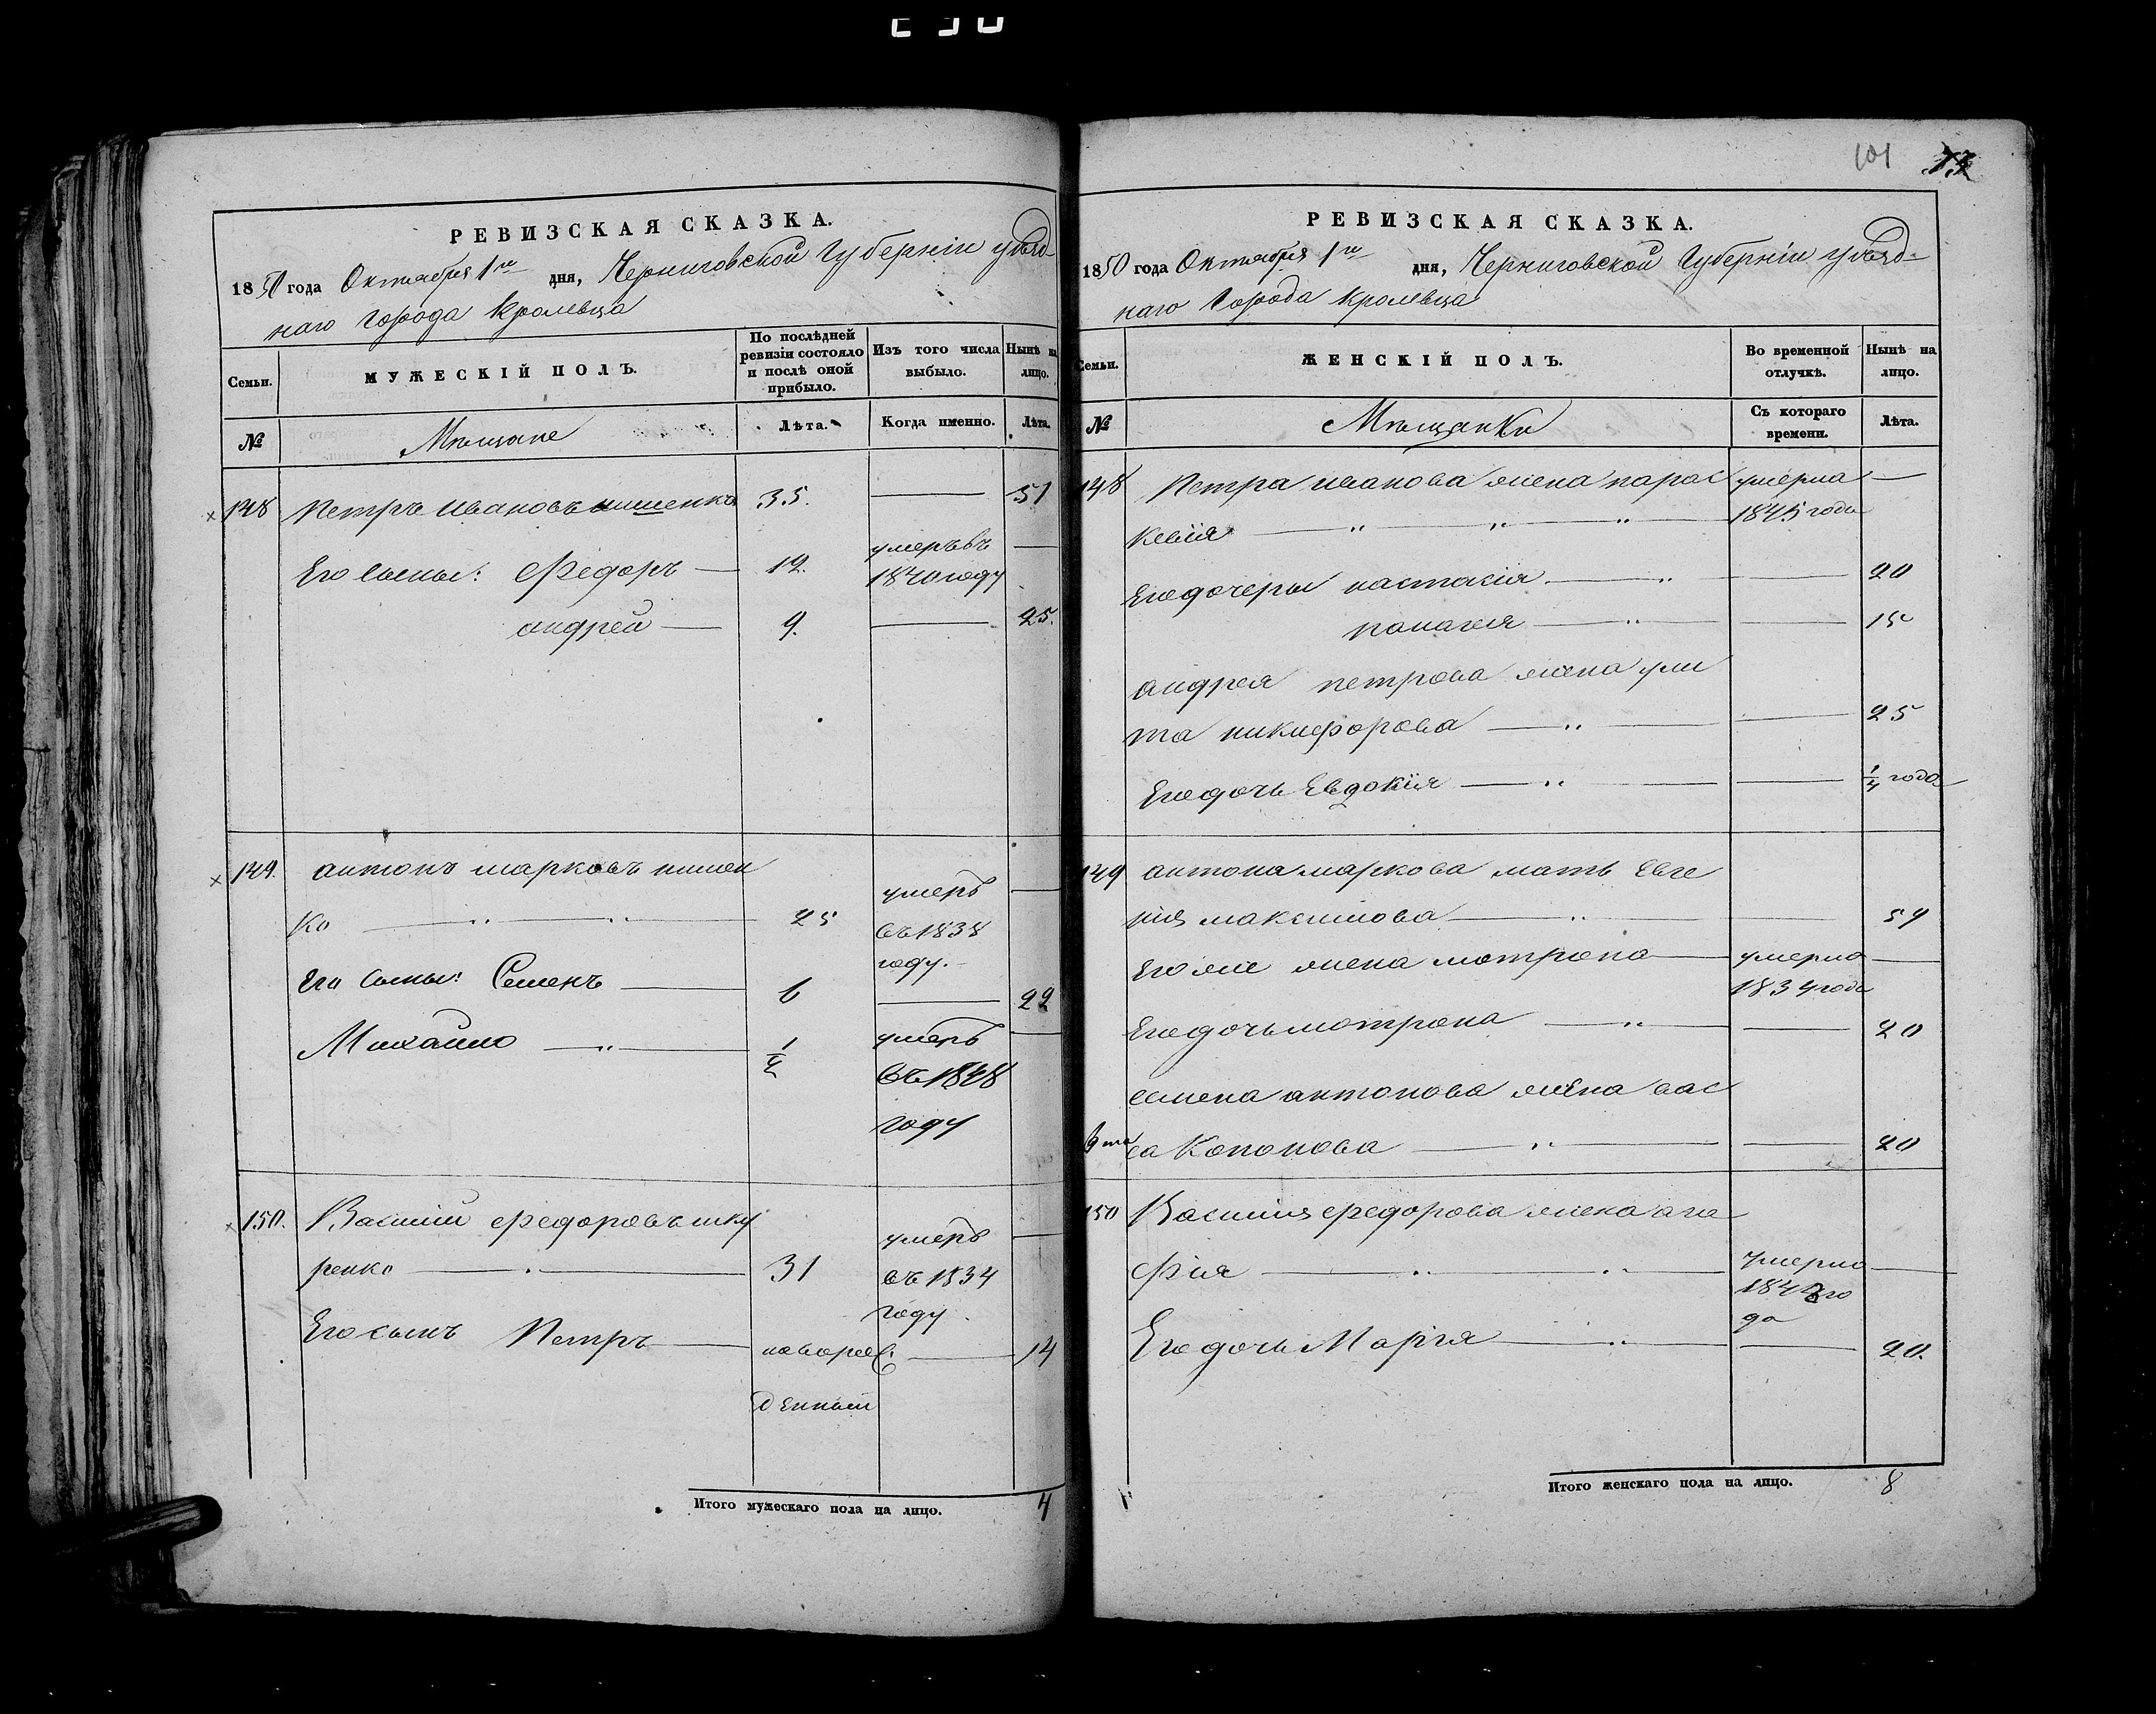 101 77
РЕВИЗСКАЯ СКАЗКА.
1850 года Октября 1го дня, Черниговской Губерніи уѣзд-
наго города Кролевца
Семьи.
МУЖЕСКІЙ ПОЛЪ.
По послѣдней ревизіи состояло и послѣ оной прибыло.
Изъ того числа выбыло.
Нынѣ на лицо.
№
Мѣщане
Лѣта.
Когда именно.
Лѣта.
148 Петръ Ивановъ 35. — 51
Его сыны: Федоръ — 12. умеръ въ —
1840 году
андрей — 9. — 25.
149. антонъ марковъ
ко — 25 умеръ —
въ 1838
году.
Его сыны: Семенъ — 6 — 22
Михайло — умеръ —
въ 1848
году
150. Василій федоровъ шку
ренко — 31 умеръ —
въ 1834
году.
Его сынъ Петръ — новорож — 14
денный
Итого мужескаго пола на лицо. 4
РЕВИЗСКАЯ СКАЗКА.
1850 года Октября 1го дня, Черниговской Губерніи уѣзд-
наго города Кролевца
Семьи.
ЖЕНСКІЙ ПОЛЪ.
Во временной отлучкѣ.
Нынѣ на лицо.
№
Мѣщанки
Съ котораго времени.
Лѣта.
148 Петра иванова жена парас умерла —
кевія — 1845 года
Его дочери настасія — 20
палагея — 15
андрея петрова жена ули
та никифорова — 25
Его дочь Евдокія — 1/4 года
149 антона маркова мать Евге
нія максимова — 59
Его же жена мотрона — умерла —
1834 года
Его дочь мотрона — 20
семена антонова жена вас
са Кононова — 20
150 Василія федорова жена ага
фія — умерла —
184 го
да
Его дочь Марія — 20.
Итого женскаго пола на лицо. 8